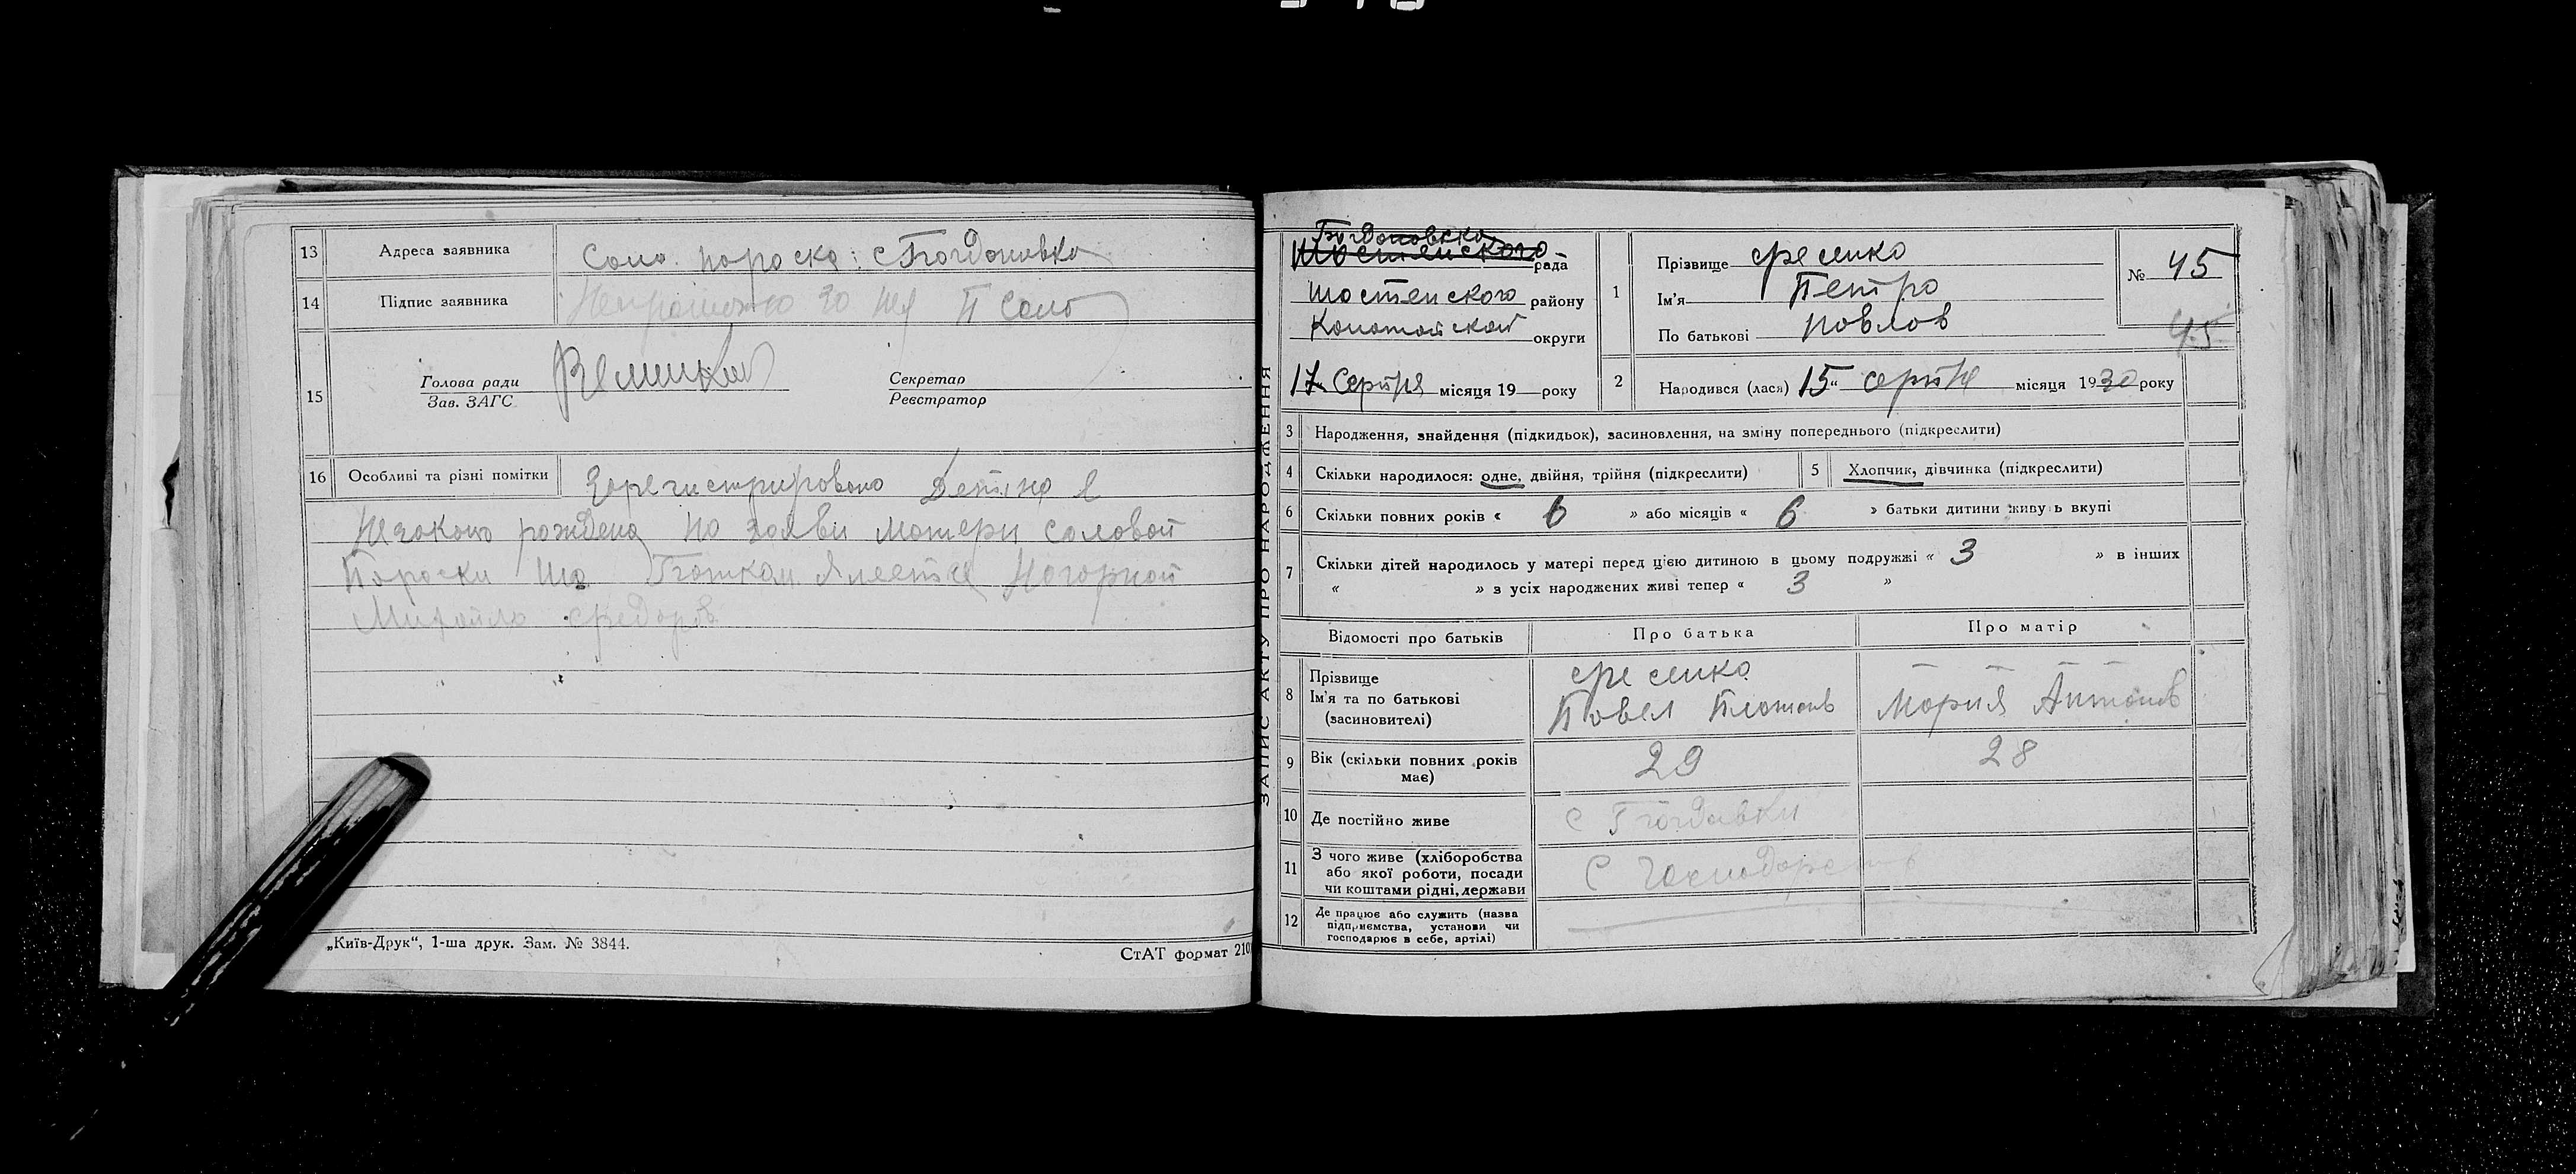 13 Адреса заявника Соло. Пороска: с Богдоновка
14 Підпис заявника за нея П Соло
15
Голова ради
Зав. ЗАГС
Секретар
Реєстратор
16 Особливі та різні помітки Зарегистрировоно Детіна
Незаконо рождена по заяви матери Соловой
Пороски що Ботком Явметце Ногорной
Михойло Федоров
„Київ-Друк“, 1-ша друк. Зам. № 3844.
СтАТ формат 210
ЗАПИС АКТУ ПРО НАРОДЖЕННЯ
Богдоновска
Шостенского рада
Шостенского району
Конотопской округи
17 Серпня місяця 19 року
1 Прізвище Фесенко
Ім’я Петро
По батькові Повлов
№ 45
45
2 Народився (лася) 15 “ серпня місяця 1930 року
3 Народження, знайдення (підкидьок), засиновлення, на зміну попереднього (підкреслити)
4 Скільки народилося: одне, двійня, трійня (підкреслити) 5 Хлопчик, дівчинка (підкреслити)
6 Скільки повних років « 6 » або місяців « 6 » батьки дитини живуть вкупі
7 Скільки дітей народилось у матері перед цією дитиною в цьому подружжі « 3 » в інших
« » з усіх народжених живі тепер « 3 »
Відомості про батьків Про батька Про матір
8 Прізвище
Ім’я та по батькові
(засиновителі)
Фесенко
Повел Плотонов
— — — —
Мория Антонов
9 Вік (скільки повних років має) 29 28
10 Де постійно живе С Богдовки
11 З чого живе (хліборобства
або якої роботи, посади
чи коштами рідні, держави
С Господорств
12 Де працює або служить (назва
підприємства, установи чи
господарює в себе, артілі)